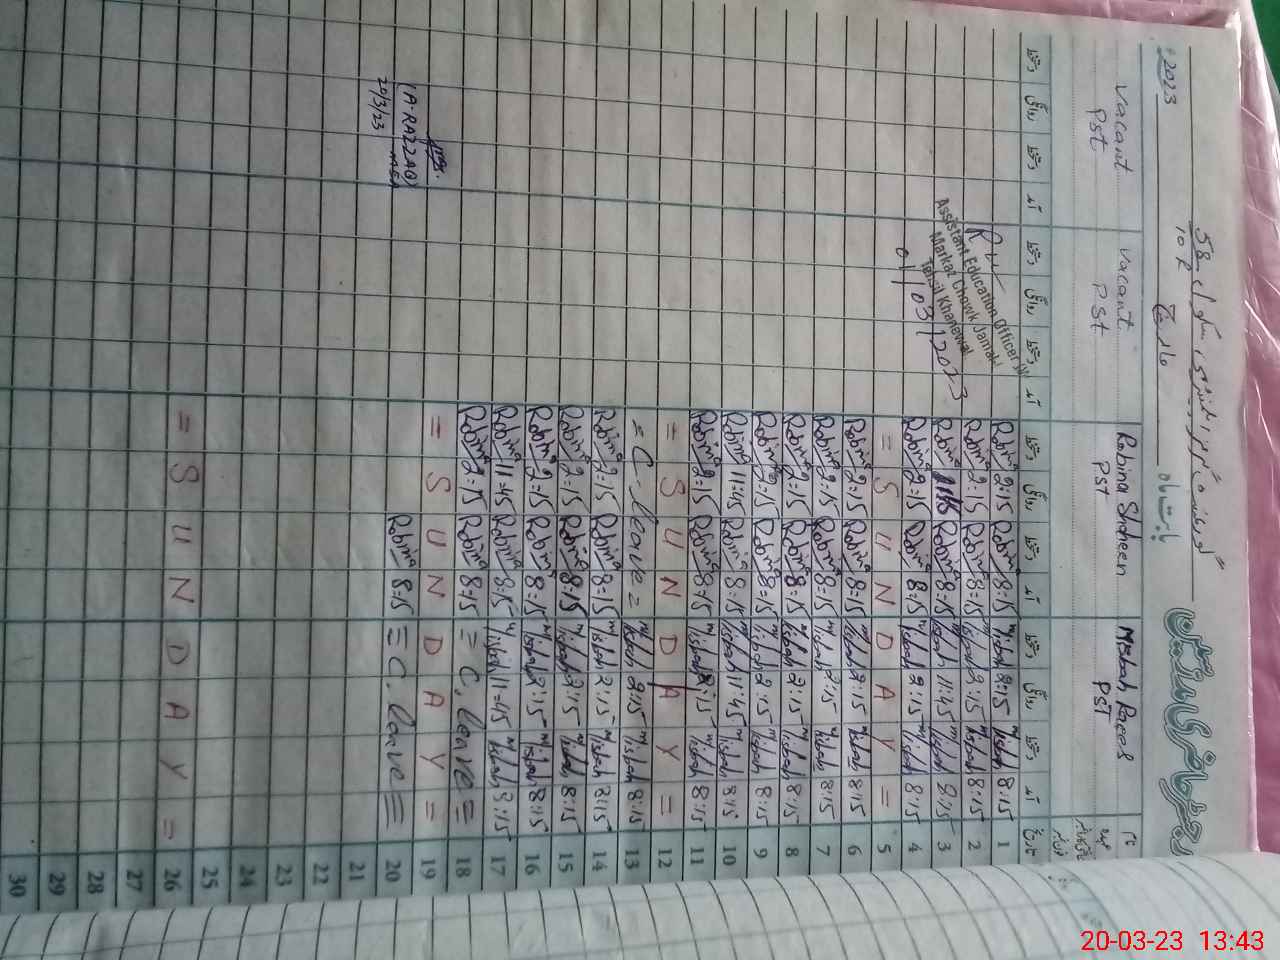 رجسٹر حاضری مدرسین
58/10R
بابت ماہ مارچ 2023
Vacant Vacant Robina Shaheen Misbah Raees نام
PST PST PST PST عہدہ
دستخط روانگی دستخط آمد دستخط روانگی دستخط آمد دستخط روانگی دستخط آمد دستخط روانگی دستخط آمد تاریخ
Robina 2:15 Robina 8:15 Misbah 2:15 Misbah 8:15 1
Robina 2:15 Robina 8:15 Misbah 2:15 Misbah 8:15 2
Robina Robina 8:15 Misbah 11:45 Misbah 8:15 3
Robina 2:15 Robina 8:15 Misbah 2:15 Misbah 8:15 4
Assistant Education Officer
Markaz Chowk Jamal
Tehsil Khanewal
01/03/2023
= S U N D A Y = 5
Robina 2:15 Robina 8:15 Misbah 2:15 Misbah 8:15 6
Robina 2:15 Robina 8:15 Misbah 2:15 Misbah 8:15 7
Robina 2:15 Robina 8:15 Misbah 2:15 Misbah 8:15 8
Robina 2:15 Robina 8:15 Misbah 2:15 Misbah 8:15 9
Robina 11:45 Robina 8:15 Misbah 11:45 Misbah 8:15 10
Robina 2:15 Robina 8:15 Misbah 2:15 Misbah 8:15 11
= S U N D A Y = 12
= C- leave = Misbah 2:15 Misbah 8:15 13
Robina 2:15 Robina 8:15 Misbah 2:15 Misbah 8:15 14
Robina 2:15 Robina 8:15 Misbah 2:15 Misbah 8:15 15
Robina 2:15 Robina 8:15 Misbah 2:15 Misbah 8:15 16
Robina 11=45 Robina 8:15 Misbah 11=45 Misbah 8:15 17
Robina 2=15 Robina 8=15 = C. leave = 18
= S U N D A Y = 19
(A-RAZZAQ)
MEA
20/3/23
Robina 8:15 = C. leave = 20
21
22
23
24
25
= S U N D A Y = 26
27
28
29
30
20-03-23 13:43